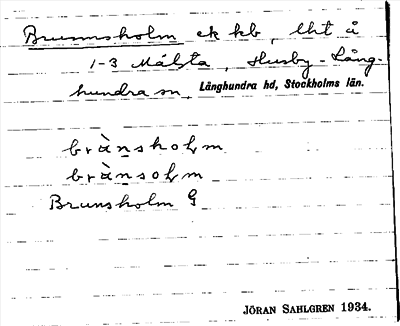 Brunnsholm ek kb, lht å
1-3 Målsta, Husby-Lång-
hundra sn, Långhundra hd, Stockholms län.
brànshoḷm
brànsoḷm
Brunsholm G
JÖRAN SAHLGREN 1934.